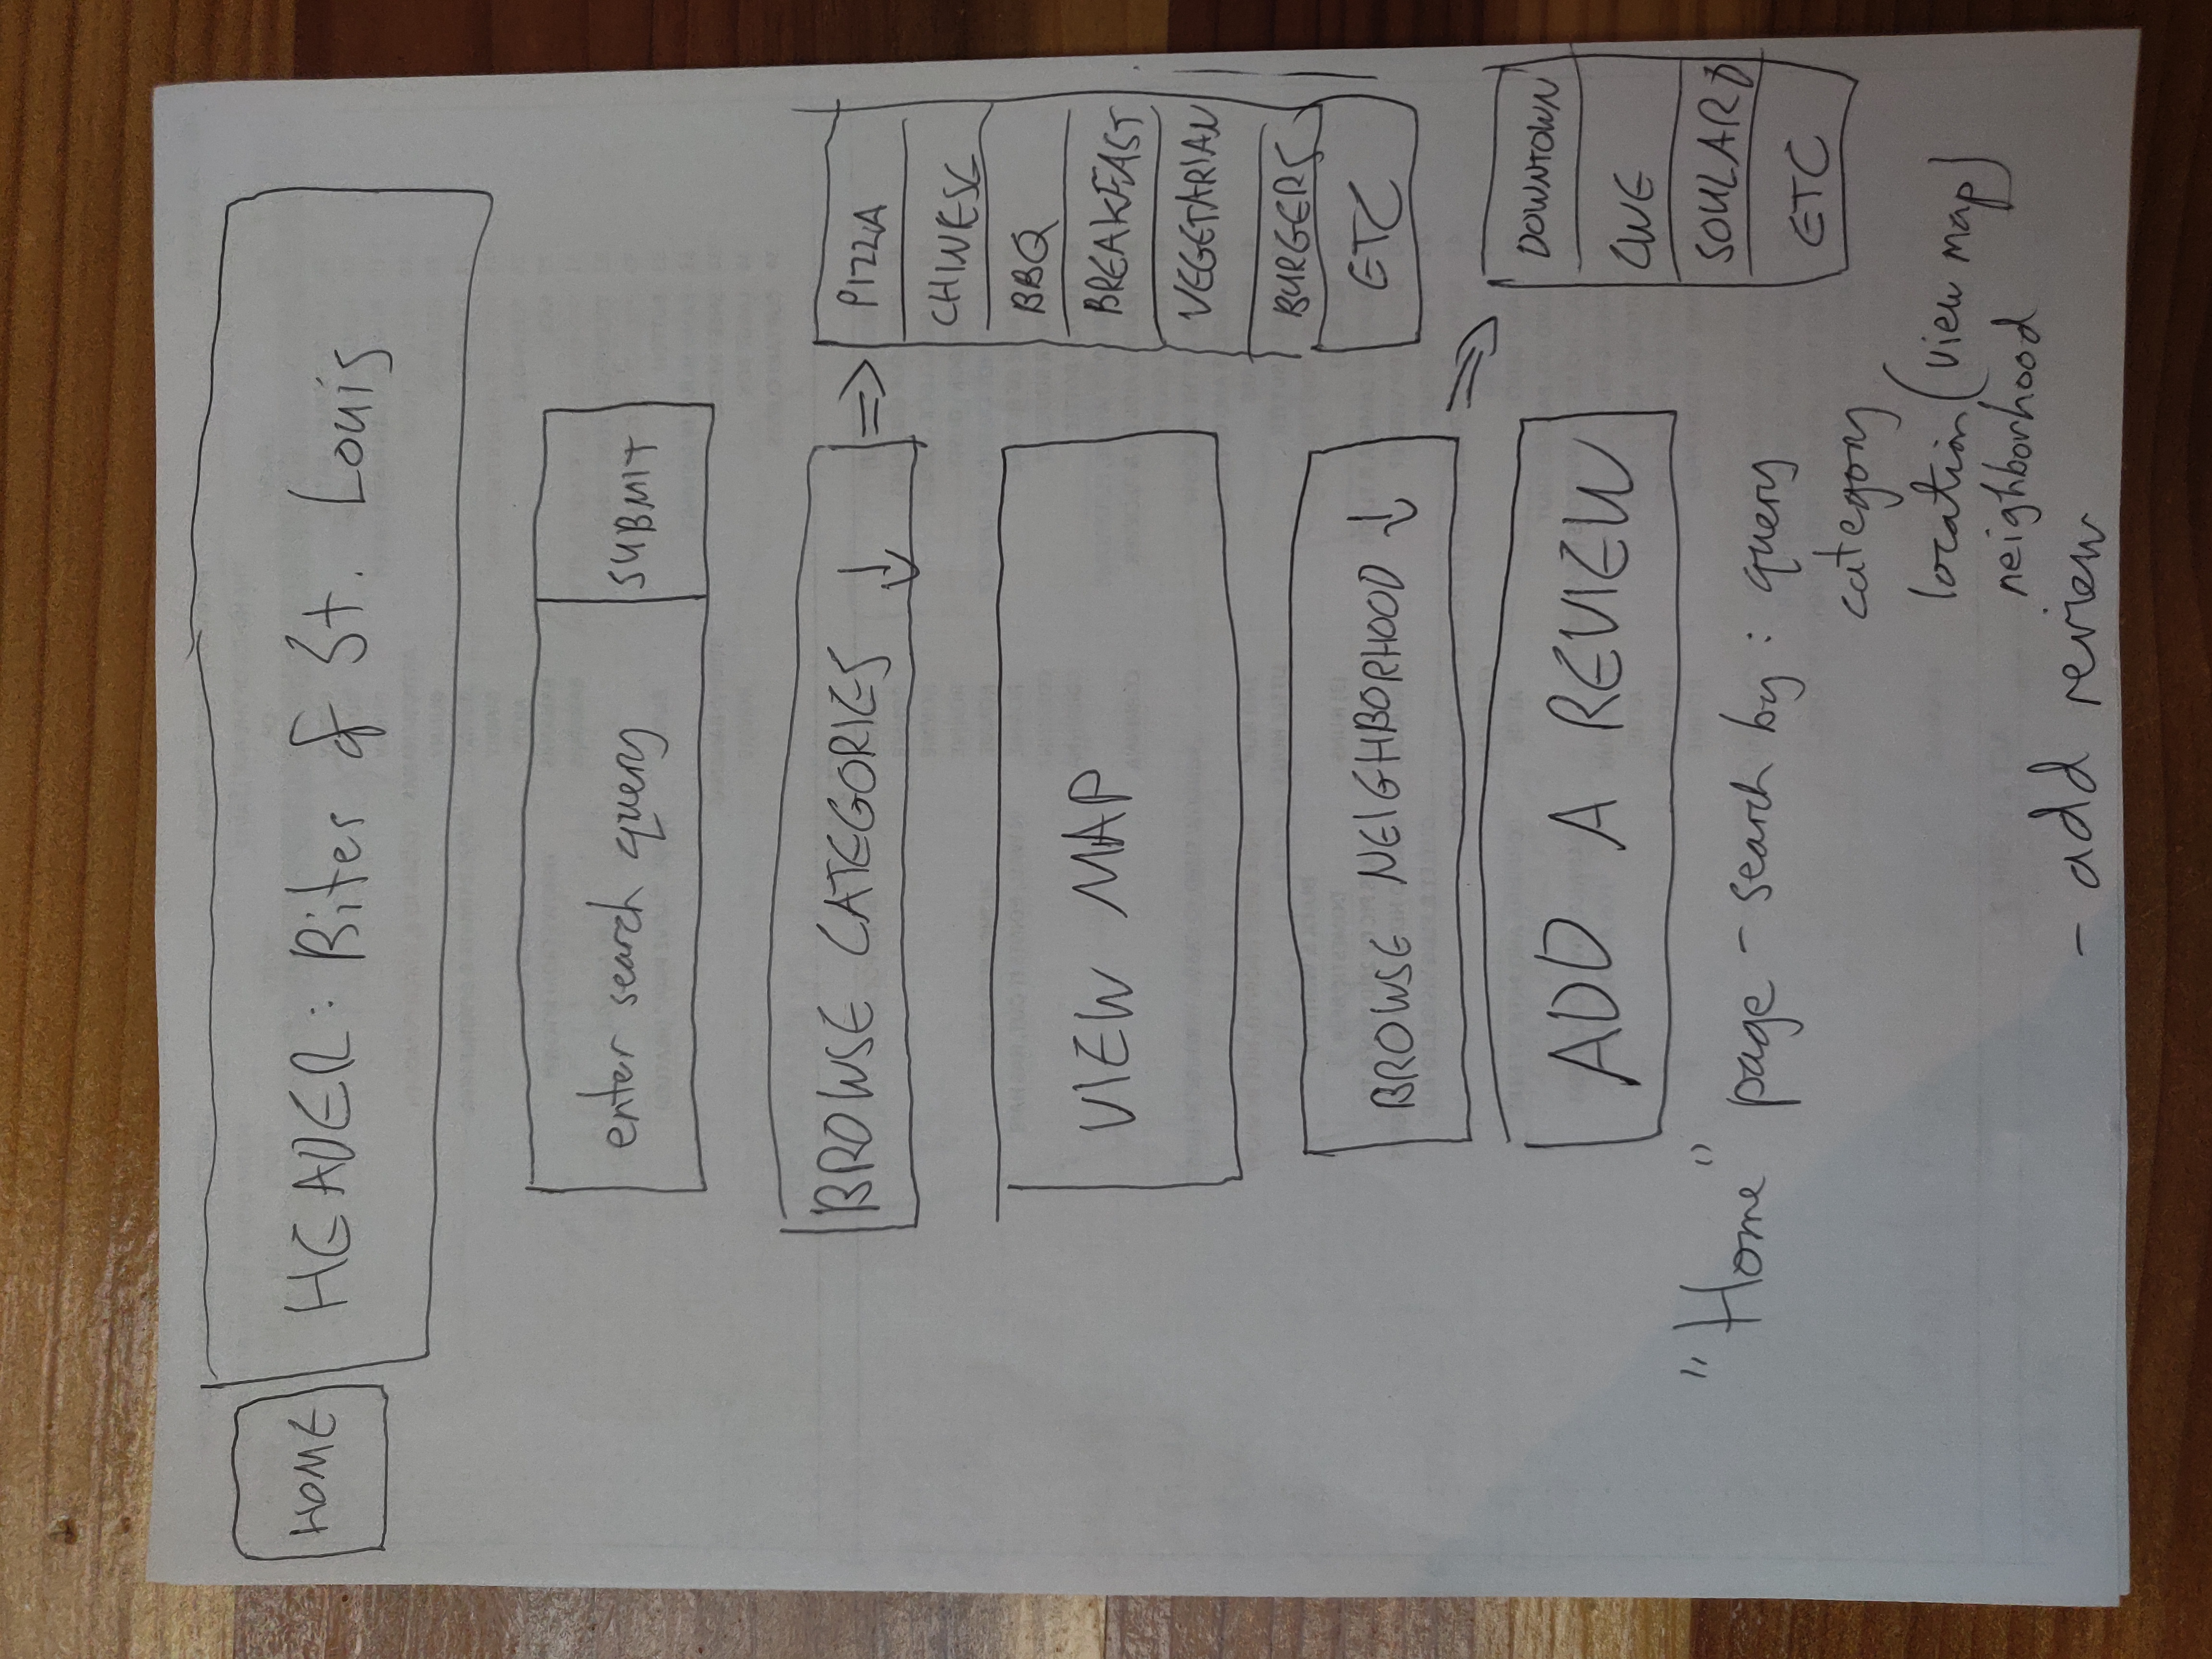 HOME
HEADER: Bites of St. Louis
enter search query
SUBMIT
BROWSE CATEGORIES ↓
⇒
PIZZA
CHINESE
BBQ
BREAKFAST
VEGETARIAN
BURGERS
ETC
VIEW MAP
BROWSE NEIGHBORHOOD ↓
⇒
DOWNTOWN
CWE
SOULARD
ETC
ADD A REVIEW
"Home" page - search by: query
category
location (view map)
neighborhood
- add review